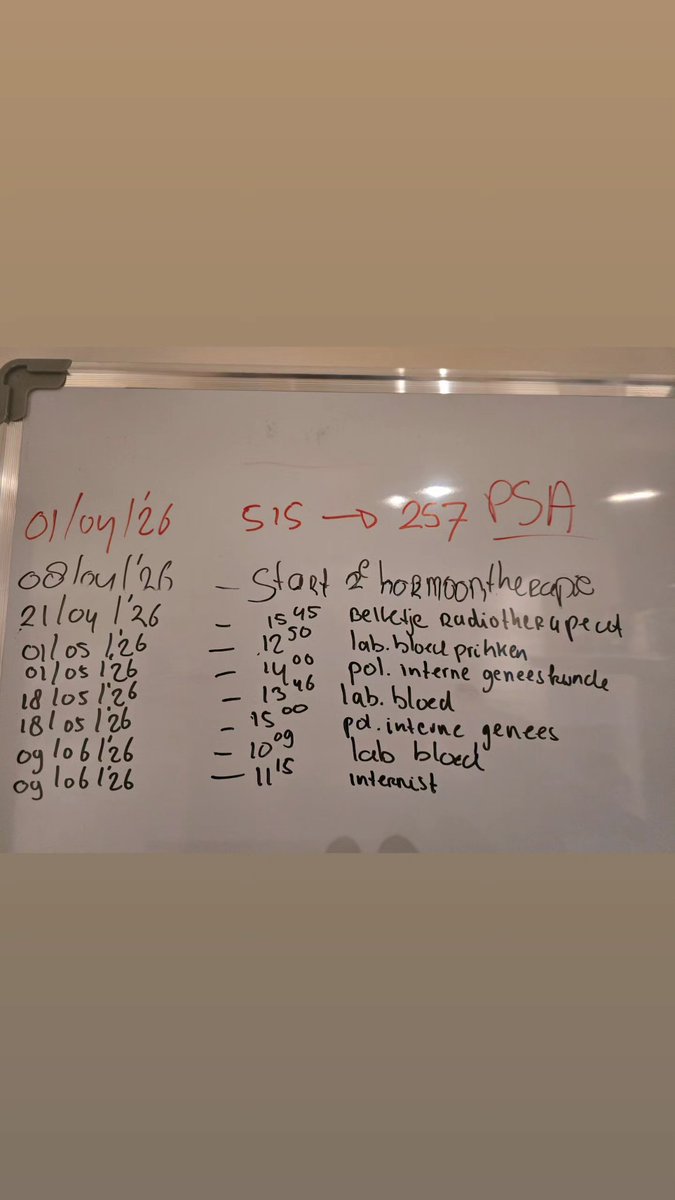 01/04/'26 515 → 257 PSA
08/04/'26 - Start 2e hormoontherapie
21/04/'26 - 15 45 Belletje Radiotherapeut
01/05/'26 - 12 50 lab. bloed prikken
01/05/'26 - 14 00 pol. interne geneeskunde
18/05/'26 - 13 46 lab. bloed
18/05/'26 - 15 00 pol. interne genees
09/06/'26 - 10 09 lab bloed
09/06/'26 - 11 15 internist